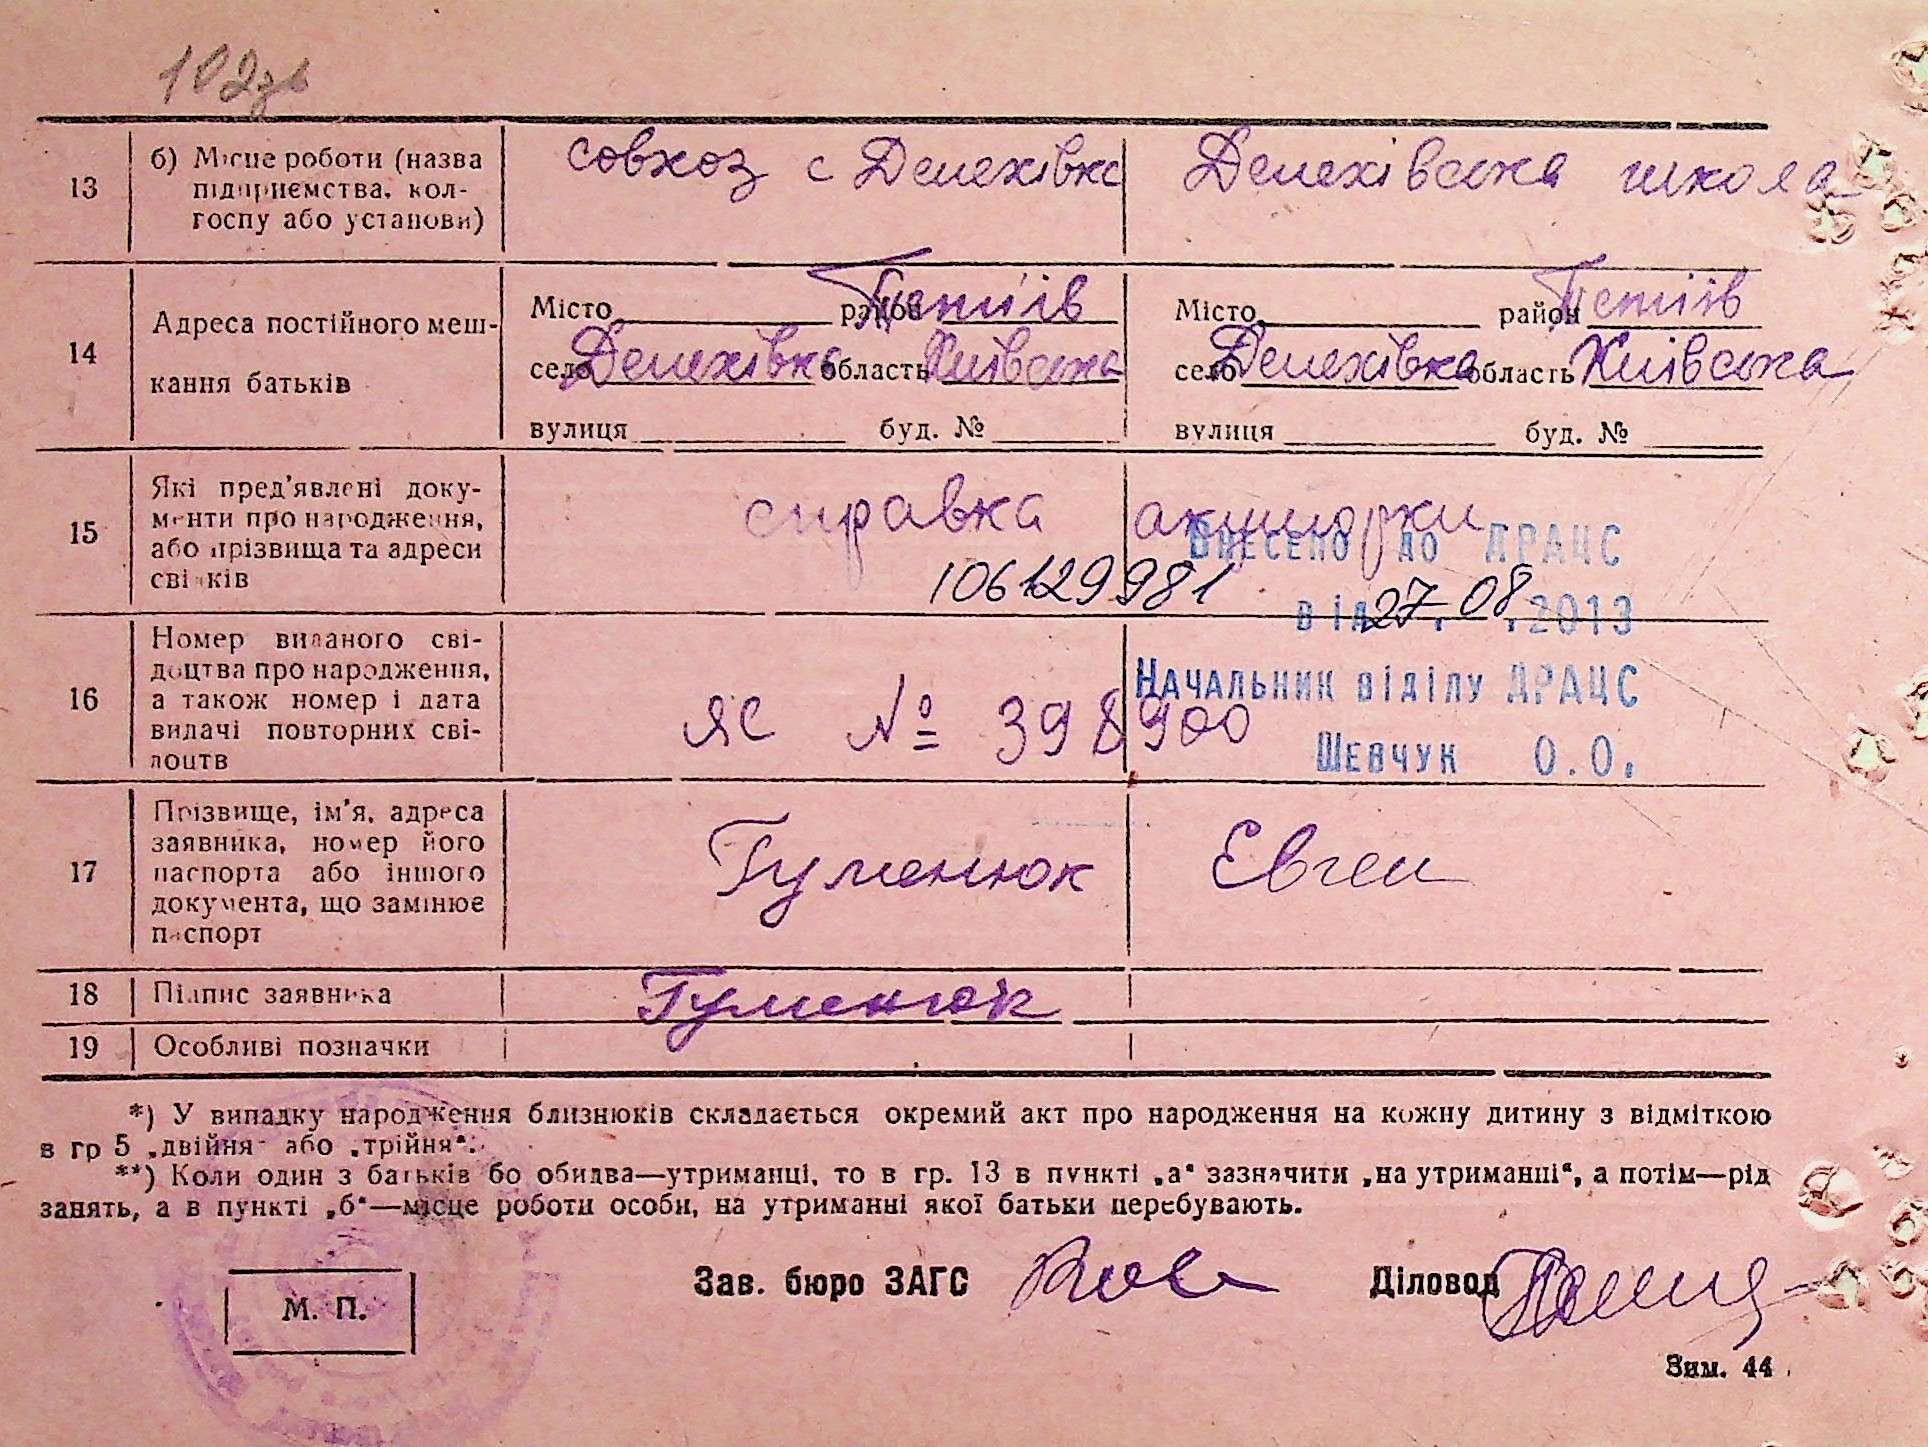 102зв
13
б) Місце роботи (назва
підприємства, кол-
госпу або установи)
совхоз с Денехівка
Денехівська школа
14
Адреса постійного меш-
кання батьків
Місто район Тетіїв
село Денехівка область Київська
вулиця буд. №
Місто район Тетіїв
село Денехівка область Київська
вулиця буд. №
15
Які пред'явлені доку-
менти про народження,
або прізвища та адреси
свідків
справка акушорки
106129981
Внесено до ДРАЦС
від 27.08.2013
Начальник відділу ДРАЦС
Шевчук О.О.
16
Номер виданого сві-
доцтва про народження,
а також номер і дата
видачі повторних сві-
доцтв
ЯС № 398900
17
Прізвище, ім'я, адреса
заявника, номер його
паспорта або іншого
документа, що замінює
паспорт
Гуменюк Евген
18
Підпис заявника
Гуменюк
19
Особливі позначки
*) У випадку народження близнюків складається окремий акт про народження на кожну дитину з відміткою
в гр 5 „двійня" або „трійня".
**) Коли один з батьків бо обидва—утриманці, то в гр. 13 в пункті „а" зазначити „на утриманні", а потім—рід
занять, а в пункті „б"—місце роботи особи, на утриманні якої батьки перебувають.
М. П.
Зав. бюро ЗАГС
Діловод
Зим. 44